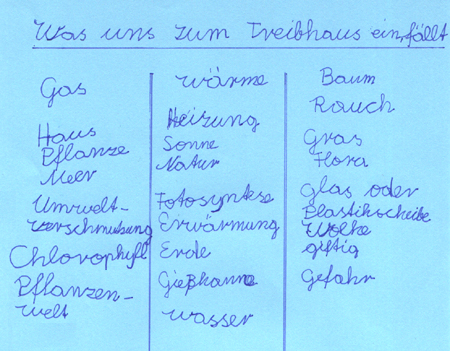 Was uns zum Treibhaus einfällt
Gas
Haus
Pflanze
Meer
Umwelt-
verschmutzung
Chlorophyll
Pflanzen-
welt
Wärme
Heizung
Sonne
Natur
Fotosyntese
Erwärmung
Erde
Gießkanne
Wasser
Baum
Rauch
Gras
Flora
Glas oder
Plastikscheibe
Wolke
giftig
Gefahr